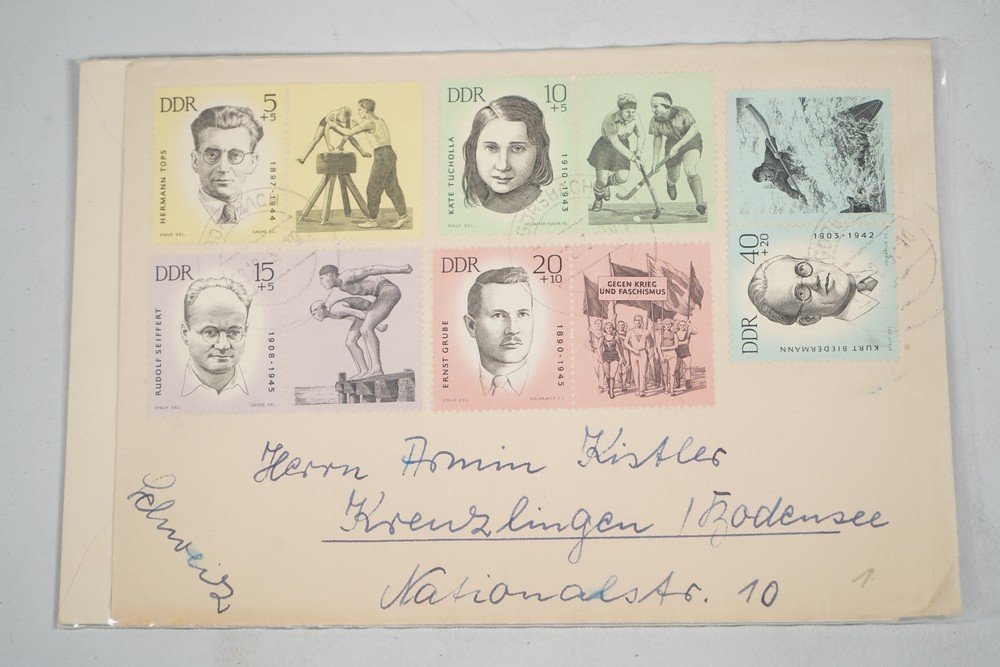 DDR 5
+5
HERMANN TOPS
1897-1944
DDR 10
+5
KÄTE TUCHOLLA
1910-1943
DDR 15
+5
RUDOLF SEIFFERT
1908-1945
DDR 20
+10
ERNST GRUBE
1890-1945
GEGEN KRIEG
UND FASCHISMUS
DDR 40
+20
1903-1942
KURT BIEDERMANN
Herrn Armin Kistler
Kreuzlingen / Bodensee
Nationalstr. 10
Schweiz
1